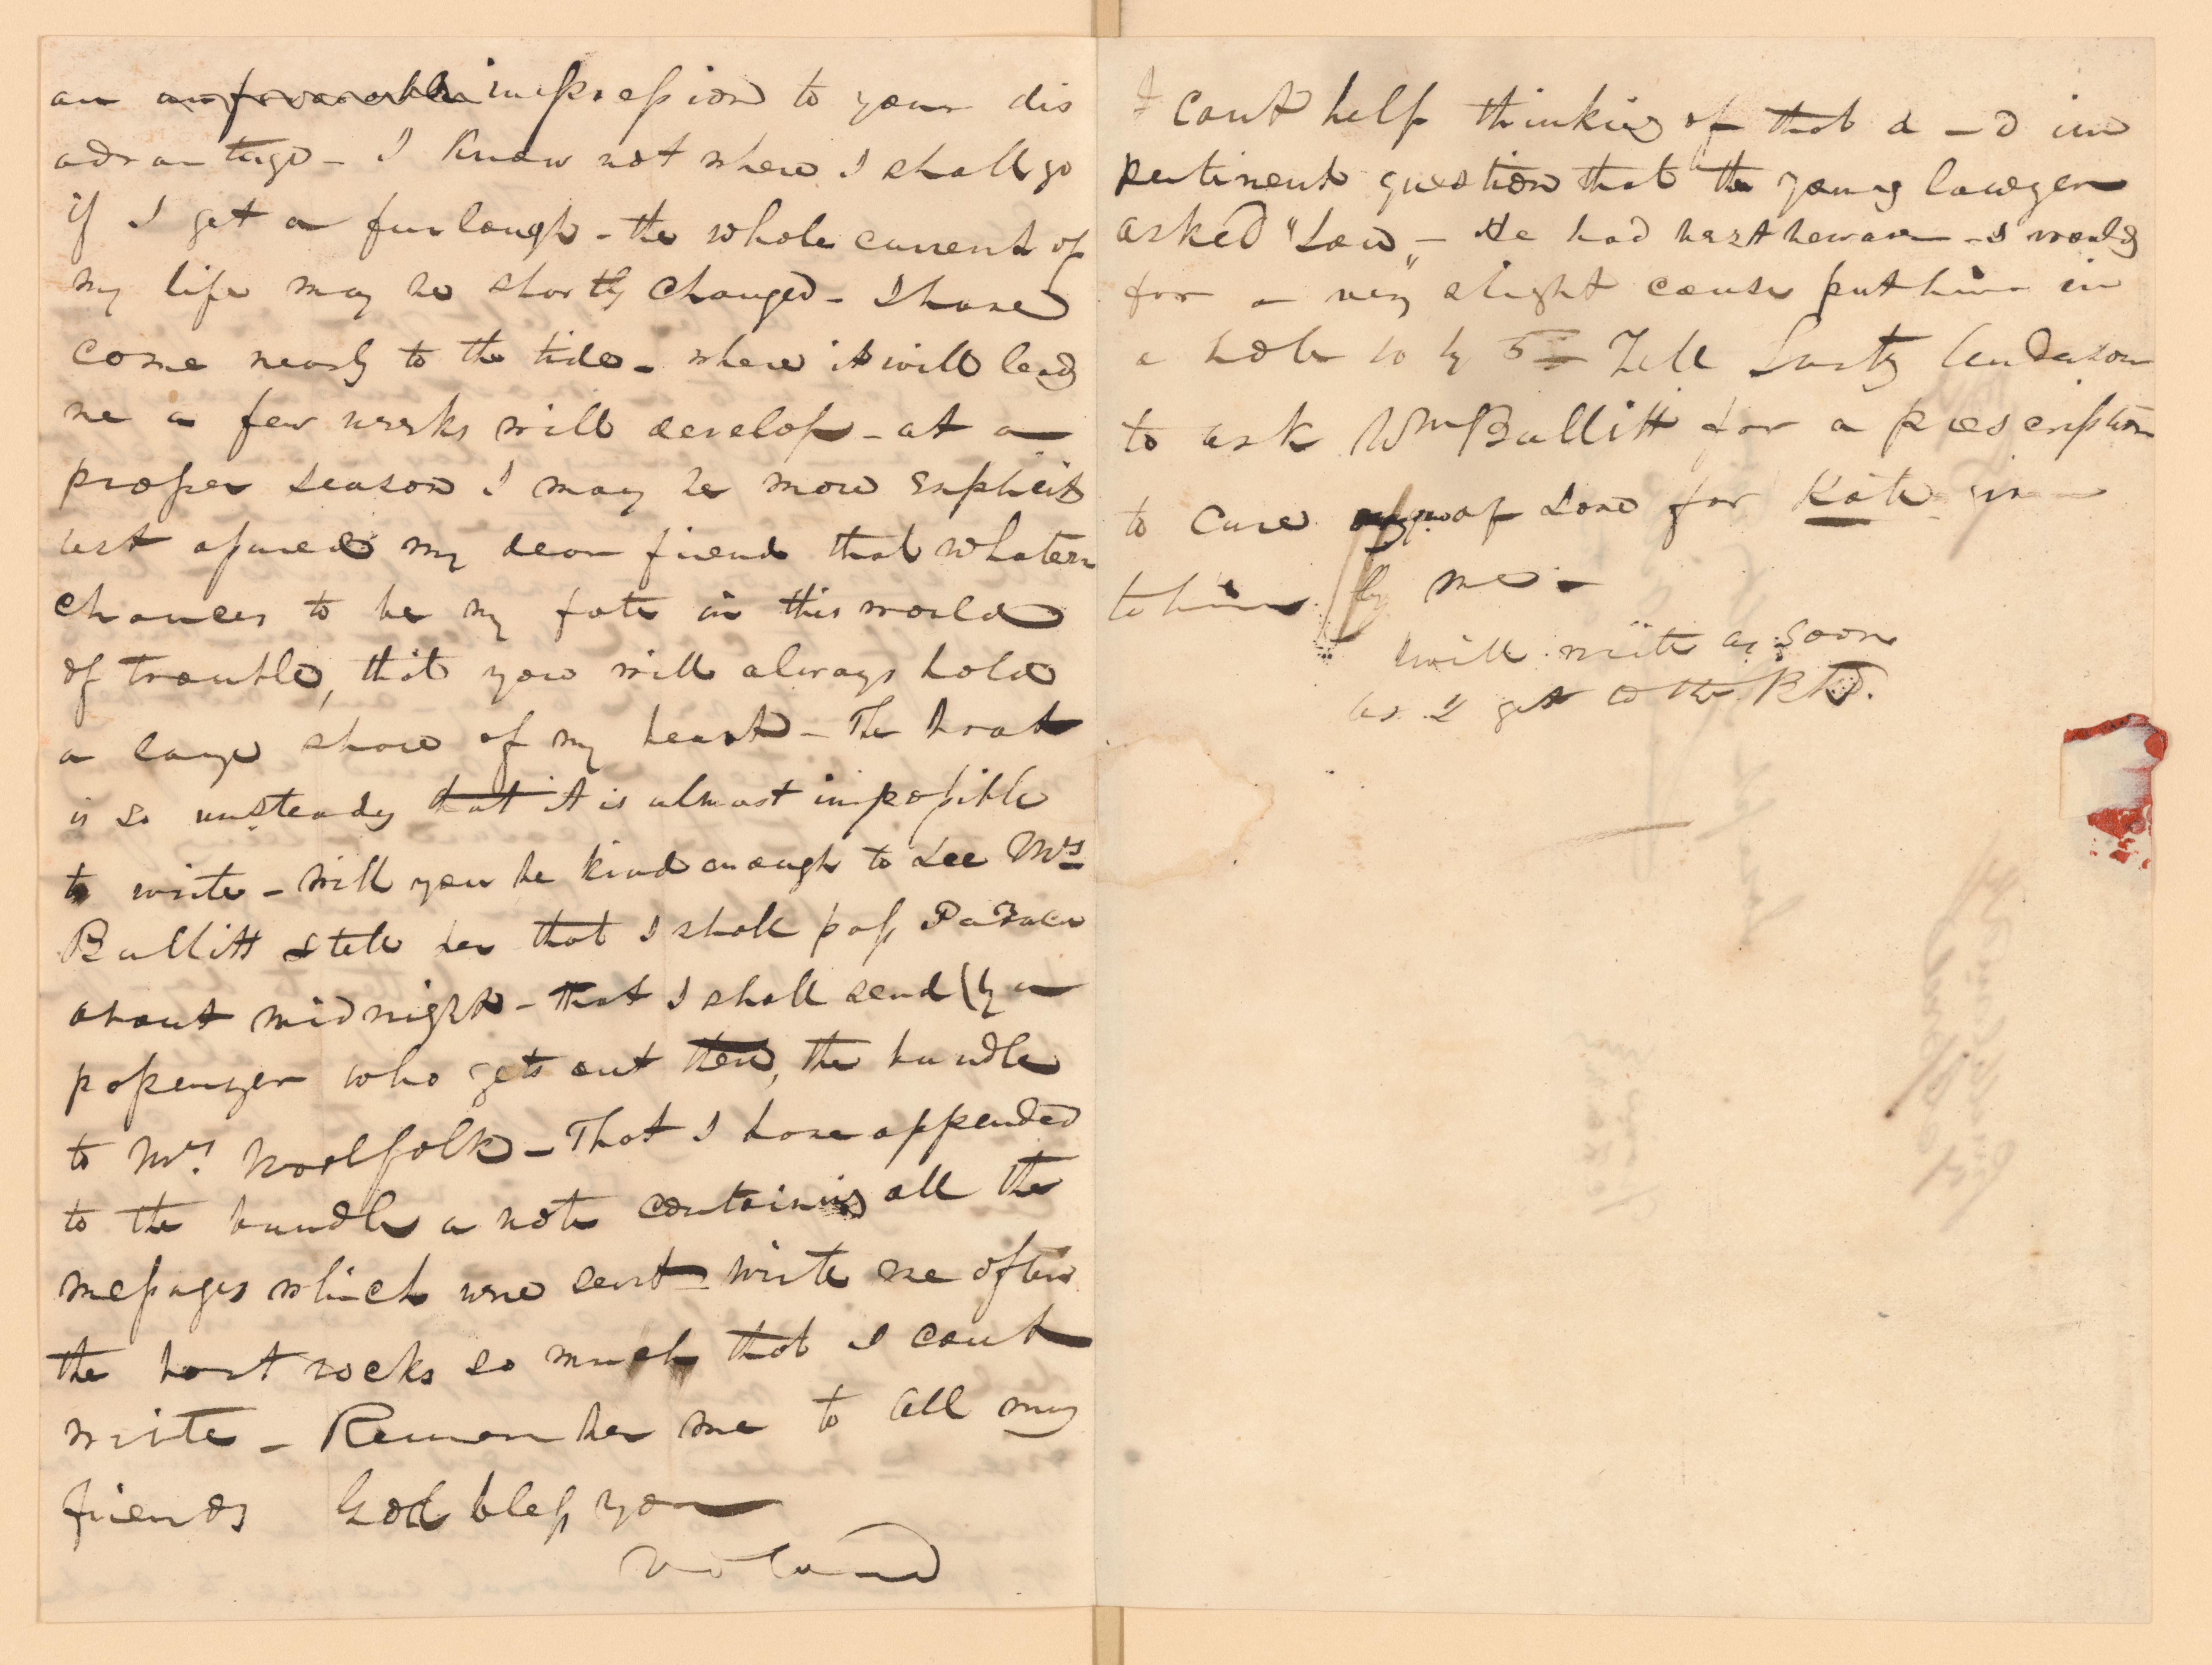 an unfavorable impression to your dis
advantage - I know not where I shall go
if I get a furlough - the whole current of
my life may be shortly changed - I have
come nearly to the tide - where it will lead
me a few weeks will develop - at a
proper season I may be more explicit
rest assured my dear friend that whatever
chances to be my fate in this world
of trouble, that you will always hold
a large share of my heart - The boat
is so unsteady that it is almost impossible
to write - Will you be kind enough to see Mrs
Bullitt & tell her that I shall pass Paducah
about midnight - that I shall send by a
passenger who gets out there, the bundle
to Mrs. Woolfolk - That I have appended
to the bundle a note containing all the
messages which were sent - Write me often
the boat rocks so much that I cant
write - Remember me to all my
friends God bless you
I cant help thinking of that d-d im
pertinent question that the young lawyer
asked "Lou" - He had best beware - I would
for a very slight cause put him in
a hole 10 by 5 - Tell Larty Anderson
to ask Wm Bullitt for a prescription
to cure of love for Kate
to him by me -
I will write as soon
as I get to the